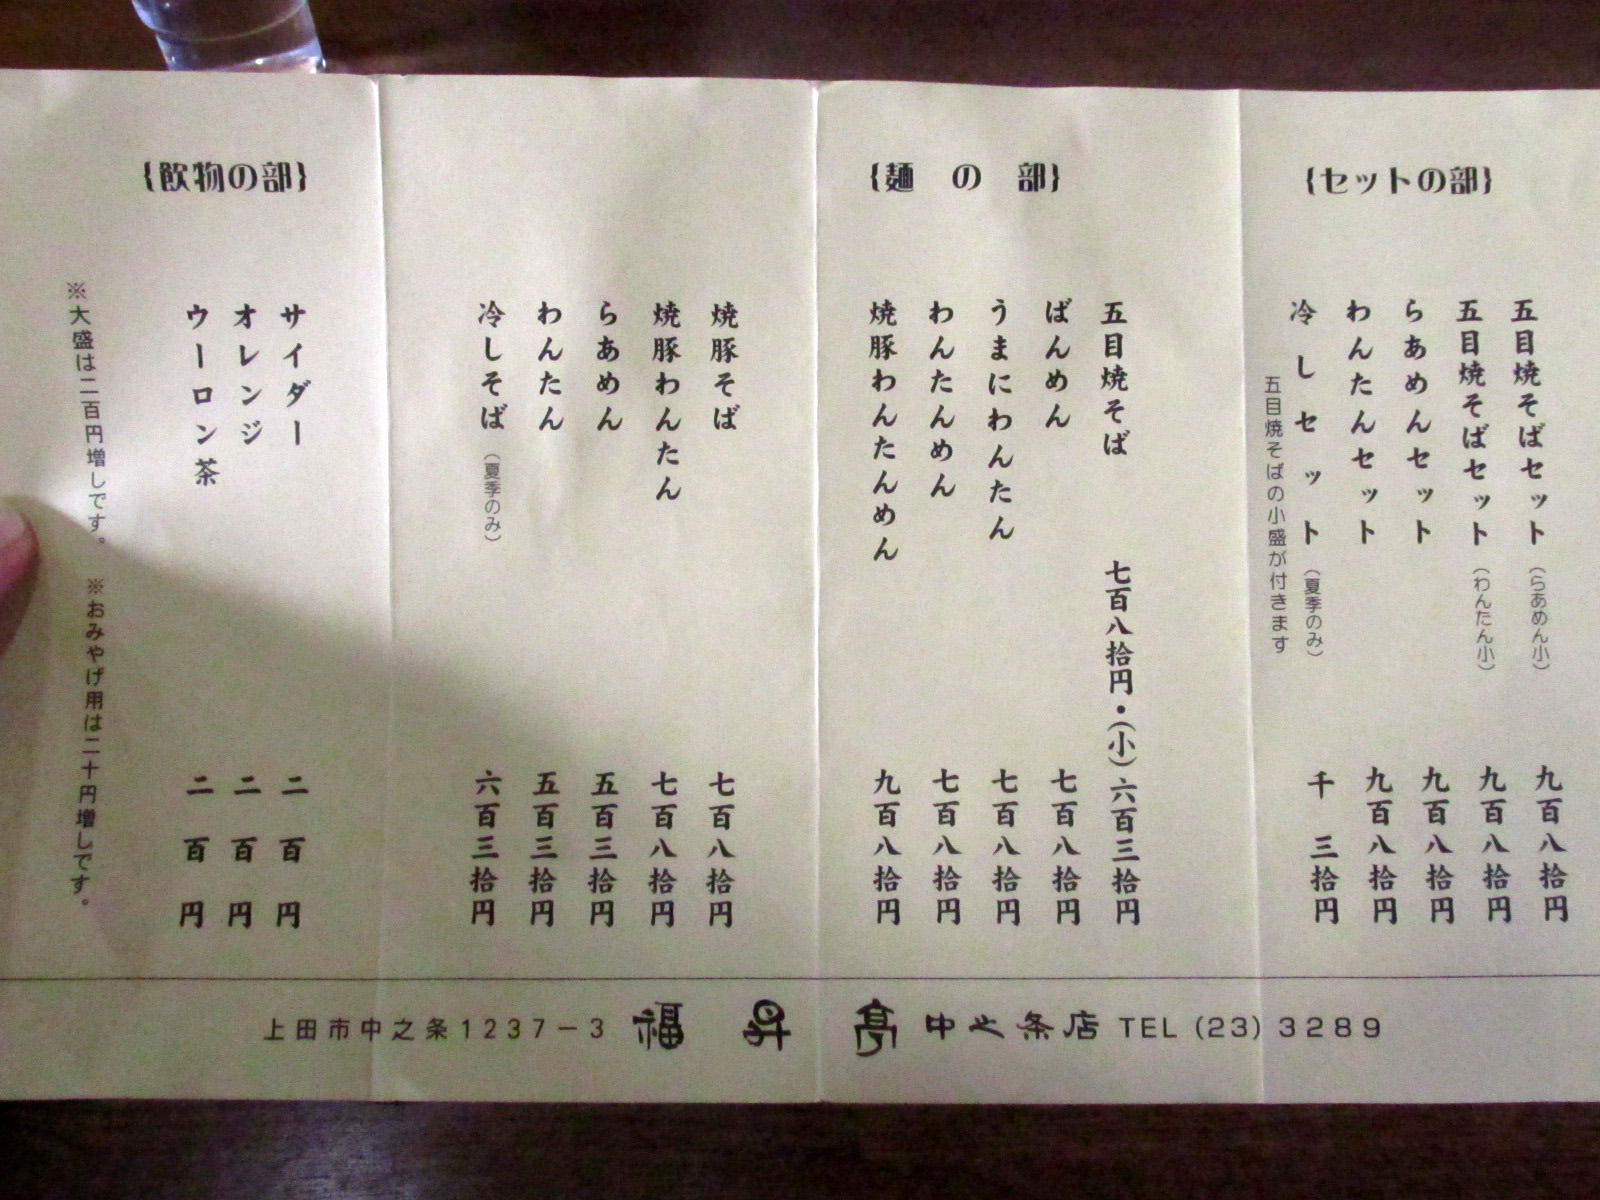 {セットの部}
五目焼そばセット（らあめん小） 九百八拾円
五目焼そばセット（わんたん小） 九百八拾円
らあめんセット 九百八拾円
わんたんセット 九百八拾円
冷しセット（夏季のみ） 千三拾円
五目焼そばの小盛が付きます
{麺の部}
五目焼そば 七百八拾円・（小）六百三拾円
ばんめん 七百八拾円
うまにわんたん 七百八拾円
わんたんめん 七百八拾円
焼豚わんたんめん 九百八拾円
焼豚そば 七百八拾円
焼豚わんたん 七百八拾円
らあめん 五百三拾円
わんたん 五百三拾円
冷しそば（夏季のみ） 六百三拾円
{飲物の部}
サイダー 二百円
オレンジ 二百円
ウーロン茶 二百円
※大盛は二百円増しです。 ※おみやげ用は二十円増しです。
上田市中之条1237－3 福昇亭 中之条店 TEL (23) 3289